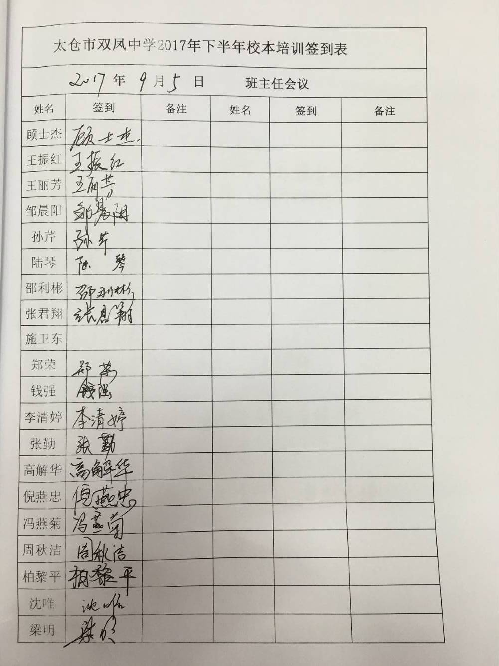 太仓市双凤中学2017年下半年校本培训签到表
2017 年 9 月 5 日 班主任会议
姓名 签到 备注 姓名 签到 备注
顾士杰 顾士杰
王振红 王振红
王丽芳 王丽芳
邹晨阳 邹晨阳
孙芹 孙芹
陆琴 陆琴
邵利彬 邵利彬
张君翔 张君翔
施卫东
郑荣
钱强 钱强
李清婷 李清婷
张勤 张勤
高解华 高解华
倪燕忠 倪燕忠
冯燕菊 冯燕菊
周秋洁 周秋洁
柏黎平 柏黎平
沈唯 沈唯
梁明 梁明